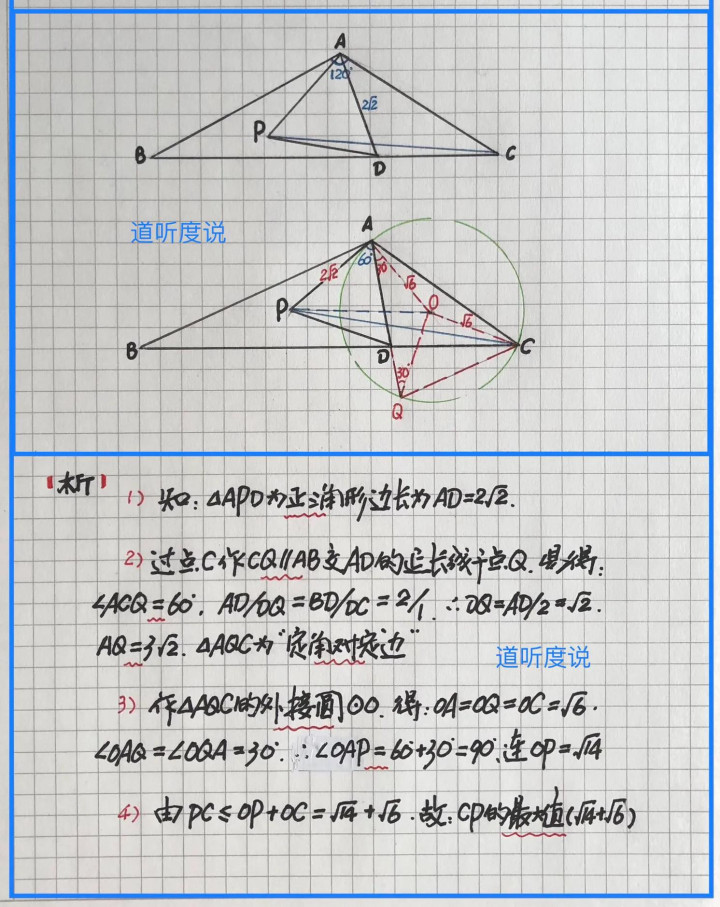 A
120°
2√2
P
B
D
C
道听度说
A
60°
30°
2√2
√6
P
O
√6
B
D
C
30°
Q
【析】
1) 知:△APD为正三角形边长为AD=2√2.
2) 过点C作CQ∥AB交AD的延长线于点Q.易得:
∠ACQ=60°. AD/DQ=BD/DC=2/1. ∴DQ=AD/2=√2.
AQ=3√2. △AQC为“定角对定边”
道听度说
3) 作△AQC的外接圆⊙O. 得:OA=OQ=OC=√6.
∠OAQ=∠OQA=30°. ∴∠OAP=60°+30°=90°.连OP=√14
4) 由PC≤OP+OC=√14+√6.故:CP的最大值(√14+√6)